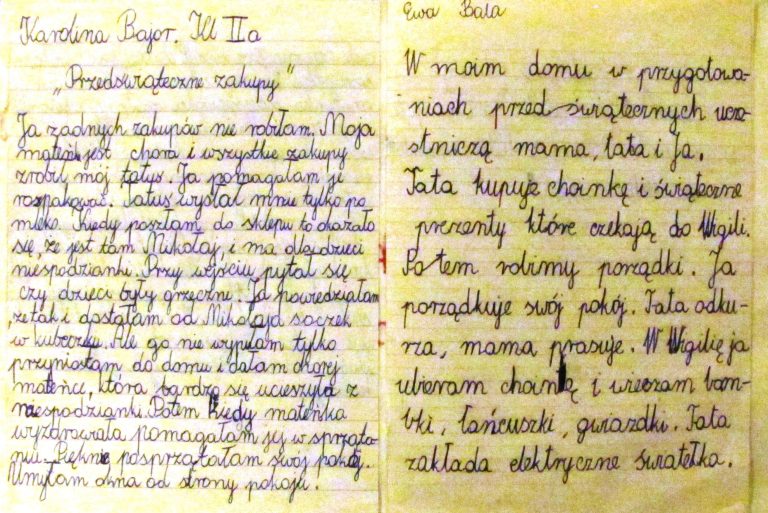 Karolina Bajor. Kl II a
„Przedświąteczne zakupy"
Ja żadnych zakupów nie robiłam. Moja
mateńka jest chora i wszystkie zakupy
zrobił mój tatuś. Ja pomagałam je
rozpakować. Tatuś wysłał mnie tylko po
mleko. Kiedy poszłam do sklepu to okazało
się, że jest tam Mikołaj, i ma dla dzieci
niespodzianki. Przy wejściu pytał się
czy dzieci były grzeczne. Ja powiedziałam
, że tak i dostałam od Mikołaja soczek
w kubeczku. Ale go nie wypiłam tylko
przyniosłam do domu i dałam chorej
mateńce, która bardzo się ucieszyła z
niespodzianki. Potem kiedy mateńka
wyzdrowiała pomagałam jej w sprząta-
niu. Pięknie posprzątałam swój pokój.
Umyłam okna od strony pokoju.
Ewa Bala
W moim domu w przygotowa-
niach przed świątecznych ucze-
stniczą mama, tata i Ja.
Tata kupuje choinkę i świąteczne
prezenty które czekają do Wigili.
Potem robimy porządki. Ja
porządkuje swój pokój. Tata odku-
rza, mama prasuje. W Wigilię ja
ubieram choinkę i wieszam bom-
bki, łańcuszki, gwiazdki. Tata
zakłada elektryczne światełka.